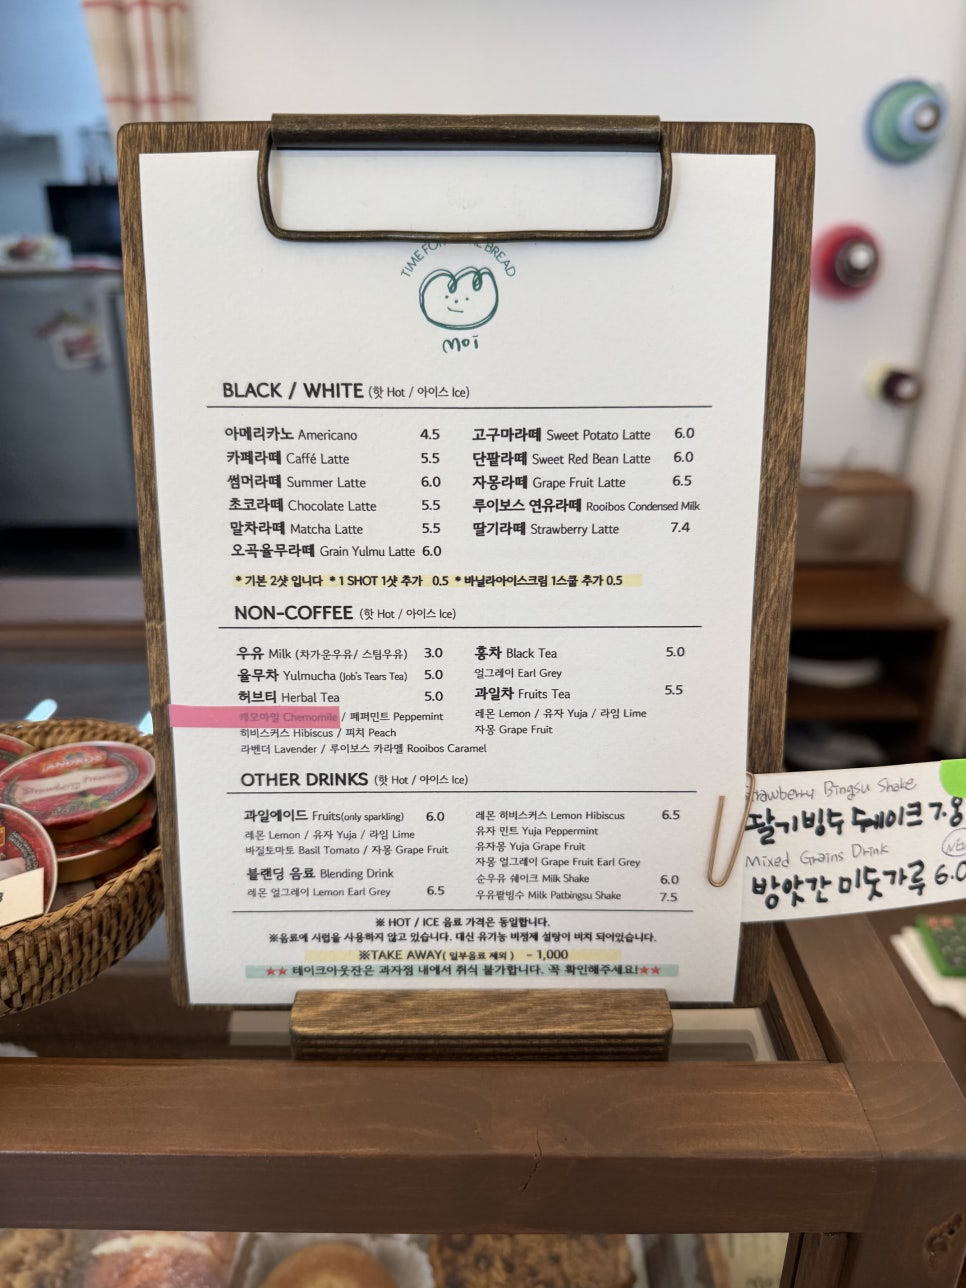 TIME FOR BREAD
moi
BLACK / WHITE (핫 Hot / 아이스 Ice)
아메리카노 Americano 4.5
카페라떼 Caffé Latte 5.5
썸머라떼 Summer Latte 6.0
초코라떼 Chocolate Latte 5.5
말차라떼 Matcha Latte 5.5
오곡율무라떼 Grain Yulmu Latte 6.0
고구마라떼 Sweet Potato Latte 6.0
단팥라떼 Sweet Red Bean Latte 6.0
자몽라떼 Grape Fruit Latte 6.5
루이보스 연유라떼 Rooibos Condensed Milk
딸기라떼 Strawberry Latte 7.4
* 기본 2샷 입니다 * 1 SHOT 1샷 추가 0.5 * 바닐라아이스크림 1스쿱 추가 0.5
NON-COFFEE (핫 Hot / 아이스 Ice)
우유 Milk (차가운우유/ 스팀우유) 3.0
율무차 Yulmucha (Job's Tears Tea) 5.0
허브티 Herbal Tea 5.0
캐모마일 Chemomile / 페퍼민트 Peppermint
히비스커스 Hibiscus / 피치 Peach
라벤더 Lavender / 루이보스 카라멜 Rooibos Caramel
홍차 Black Tea 5.0
얼그레이 Earl Grey
과일차 Fruits Tea 5.5
레몬 Lemon / 유자 Yuja / 라임 Lime
자몽 Grape Fruit
OTHER DRINKS (핫 Hot / 아이스 Ice)
과일에이드 Fruits(only sparkling) 6.0
레몬 Lemon / 유자 Yuja / 라임 Lime
바질토마토 Basil Tomato / 자몽 Grape Fruit
블랜딩 음료 Blending Drink
레몬 얼그레이 Lemon Earl Grey 6.5
레몬 히비스커스 Lemon Hibiscus 6.5
유자 민트 Yuja Peppermint
유자몽 Yuja Grape Fruit
자몽 얼그레이 Grape Fruit Earl Grey
순우유 쉐이크 Milk Shake 6.0
우유팥빙수 Milk Patbingsu Shake 7.5
※ HOT / ICE 음료 가격은 동일합니다.
※음료에 시럽을 사용하지 않고 있습니다. 대신 유기농 비정제 설탕이 비치 되어있습니다.
※TAKE AWAY( 일부음료 제외 ) - 1,000
★★ 테이크아웃잔은 과자점 내에서 취식 불가합니다. 꼭 확인해주세요!★★
Strawberry Bingsu Shake
딸기빙수 쉐이크 7.8
Mixed Grains Drink
NEW
방앗간 미숫가루 6.0
ANDROS
Strawberry Preserve